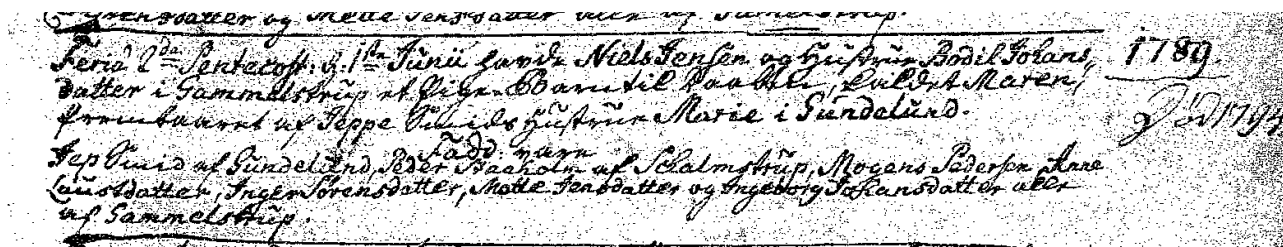 Sørensdatter og Mette Jensdatter alle af Gammelstrup.
Feria 2da Pentecost: d. 1ste Junii havde Niels Jensen og Hustrue Bodil Johans,
datter i Gammelstrup et Pige-Barn til Daaben, kaldet Maren,
frembaaret af Jeppe Smids Hustrue Marie i Gundelund.
Fadd. vare
Jep Smid af Gundelund, Peder Staaholm af Schalmstrup, Mogens Pedersen Anne
Laustdatter, Inger Sörensdatter, Mette Jensdatter og Ingeborg Johansdatter alle
af Gammelstrup.
1789
Död 1794